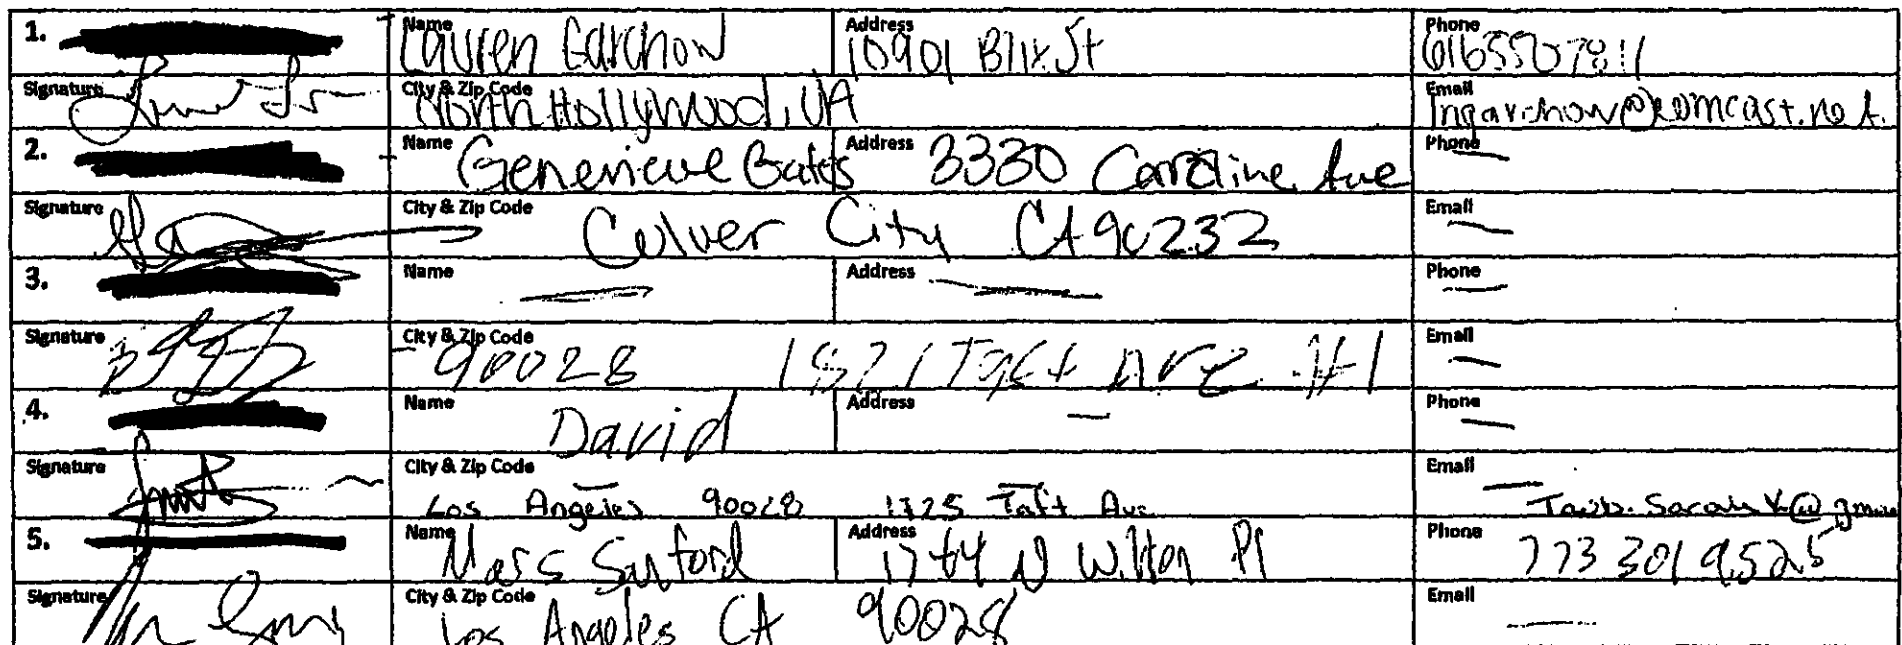 1. Name Lauren Garchow Address 10901 Blix St Phone 6165507811
Signature City & Zip Code North Hollywood, CA Email lngarchow@comcast.net
2. Name Genevieve Bates Address 3330 Caroline Ave Phone —
Signature City & Zip Code Culver City CA 90232 Email —
3. Name — Address — Phone —
Signature City & Zip Code 90028 Taft Ave #1 Email —
4. Name David Address — Phone —
Signature City & Zip Code Los Angeles 90028 1725 Taft Ave Email —
5. Name Address 1744 N Wilton Pl Phone 773 301 9525
Signature City & Zip Code Los Angeles CA 90028 Email —